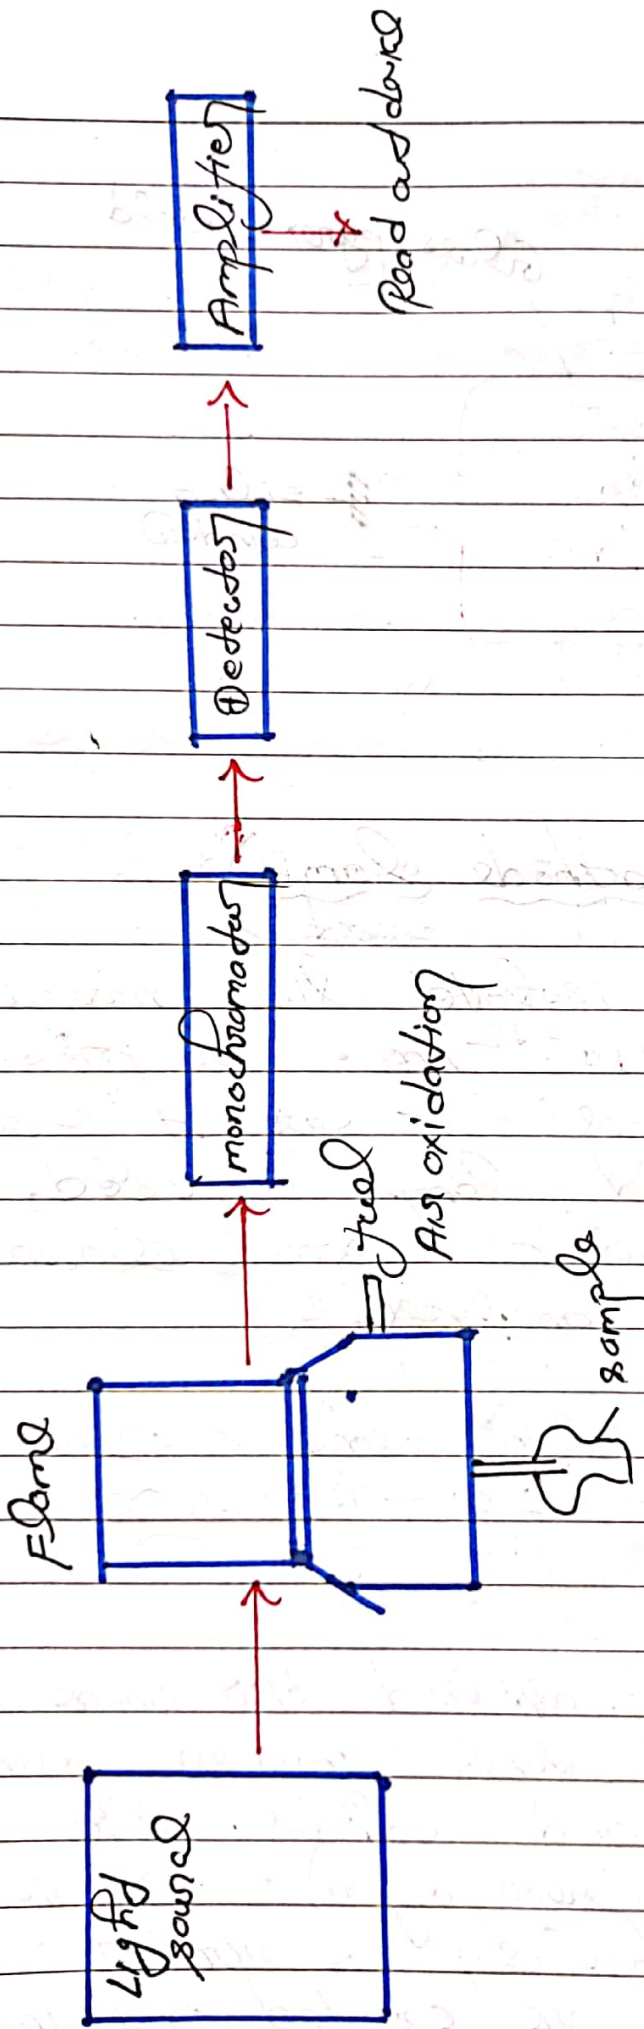 Light
source
Flame
fuel
Air oxidation
sample
monochromator
Detector
Amplifier
Read out device